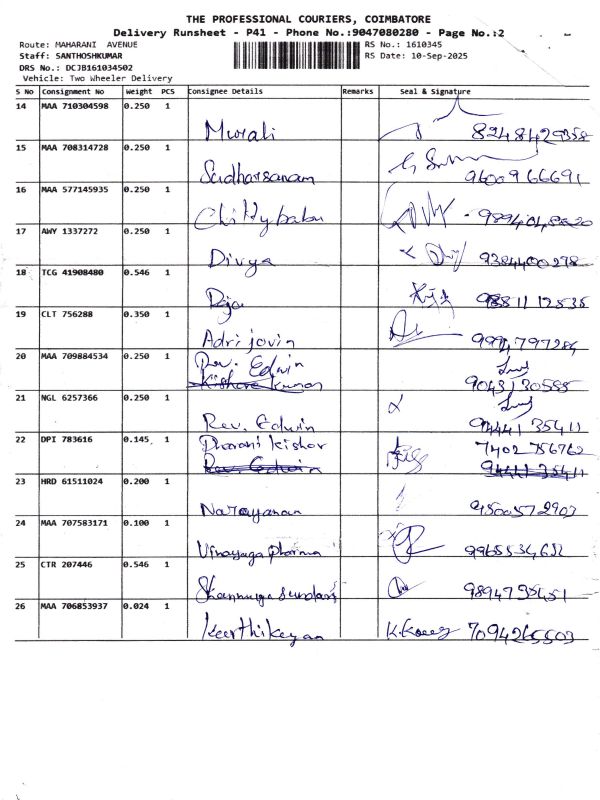 THE PROFESSIONAL COURIERS, COIMBATORE
Delivery Runsheet - P41 - Phone No.:9047080280 - Page No.:2
Route: MAHARANI AVENUE RS No.: 1610345
Staff: SANTHOSHKUMAR RS Date: 10-Sep-2025
DRS No.: DCJB161034502
Vehicle: Two Wheeler Delivery
S No Consignment No Weight PCS Consignee Details Remarks Seal & Signature
14 MAA 710304598 0.250 1
Murali 8248429358
15 MAA 708314728 0.250 1
Sudharsanam 9600966691
16 MAA 577145935 0.250 1
Chittybabu
17 AWY 1337272 0.250 1
Divya 9384400298
18 TCG 41908480 0.546 1
Raja
19 CLT 756288 0.350 1
Adri jovin 9994797284
20 MAA 709884534 0.250 1
Rev. Edwin
Kishore kumar 9043130585
21 NGL 6257366 0.250 1
Rev. Edwin 94441 35411
22 DPI 783616 0.145 1
Dharani kishor 7402756762
Rev. Edwin 94441 35411
23 HRD 61511024 0.200 1
Narayanan 9500572903
24 MAA 707583171 0.100 1
Vinayaga pharma
25 CTR 207446 0.546 1
Shanmuga sundari
26 MAA 706853937 0.024 1
Keerthikeyan 7094265503